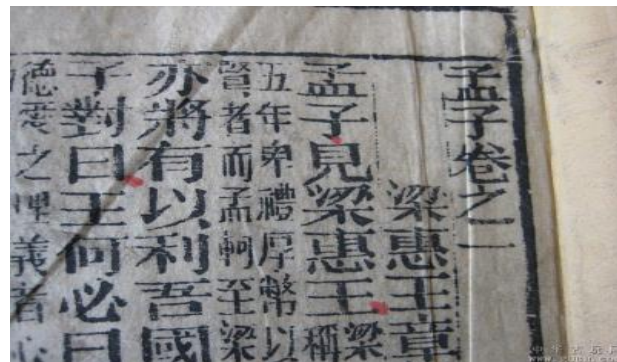 孟子卷之一
梁惠王章
孟子見梁惠王
梁
稱
五年卑禮厚幣以
賢者而孟軻至梁
亦將有以利吾國
子對曰王何必曰
德愛之理義者心